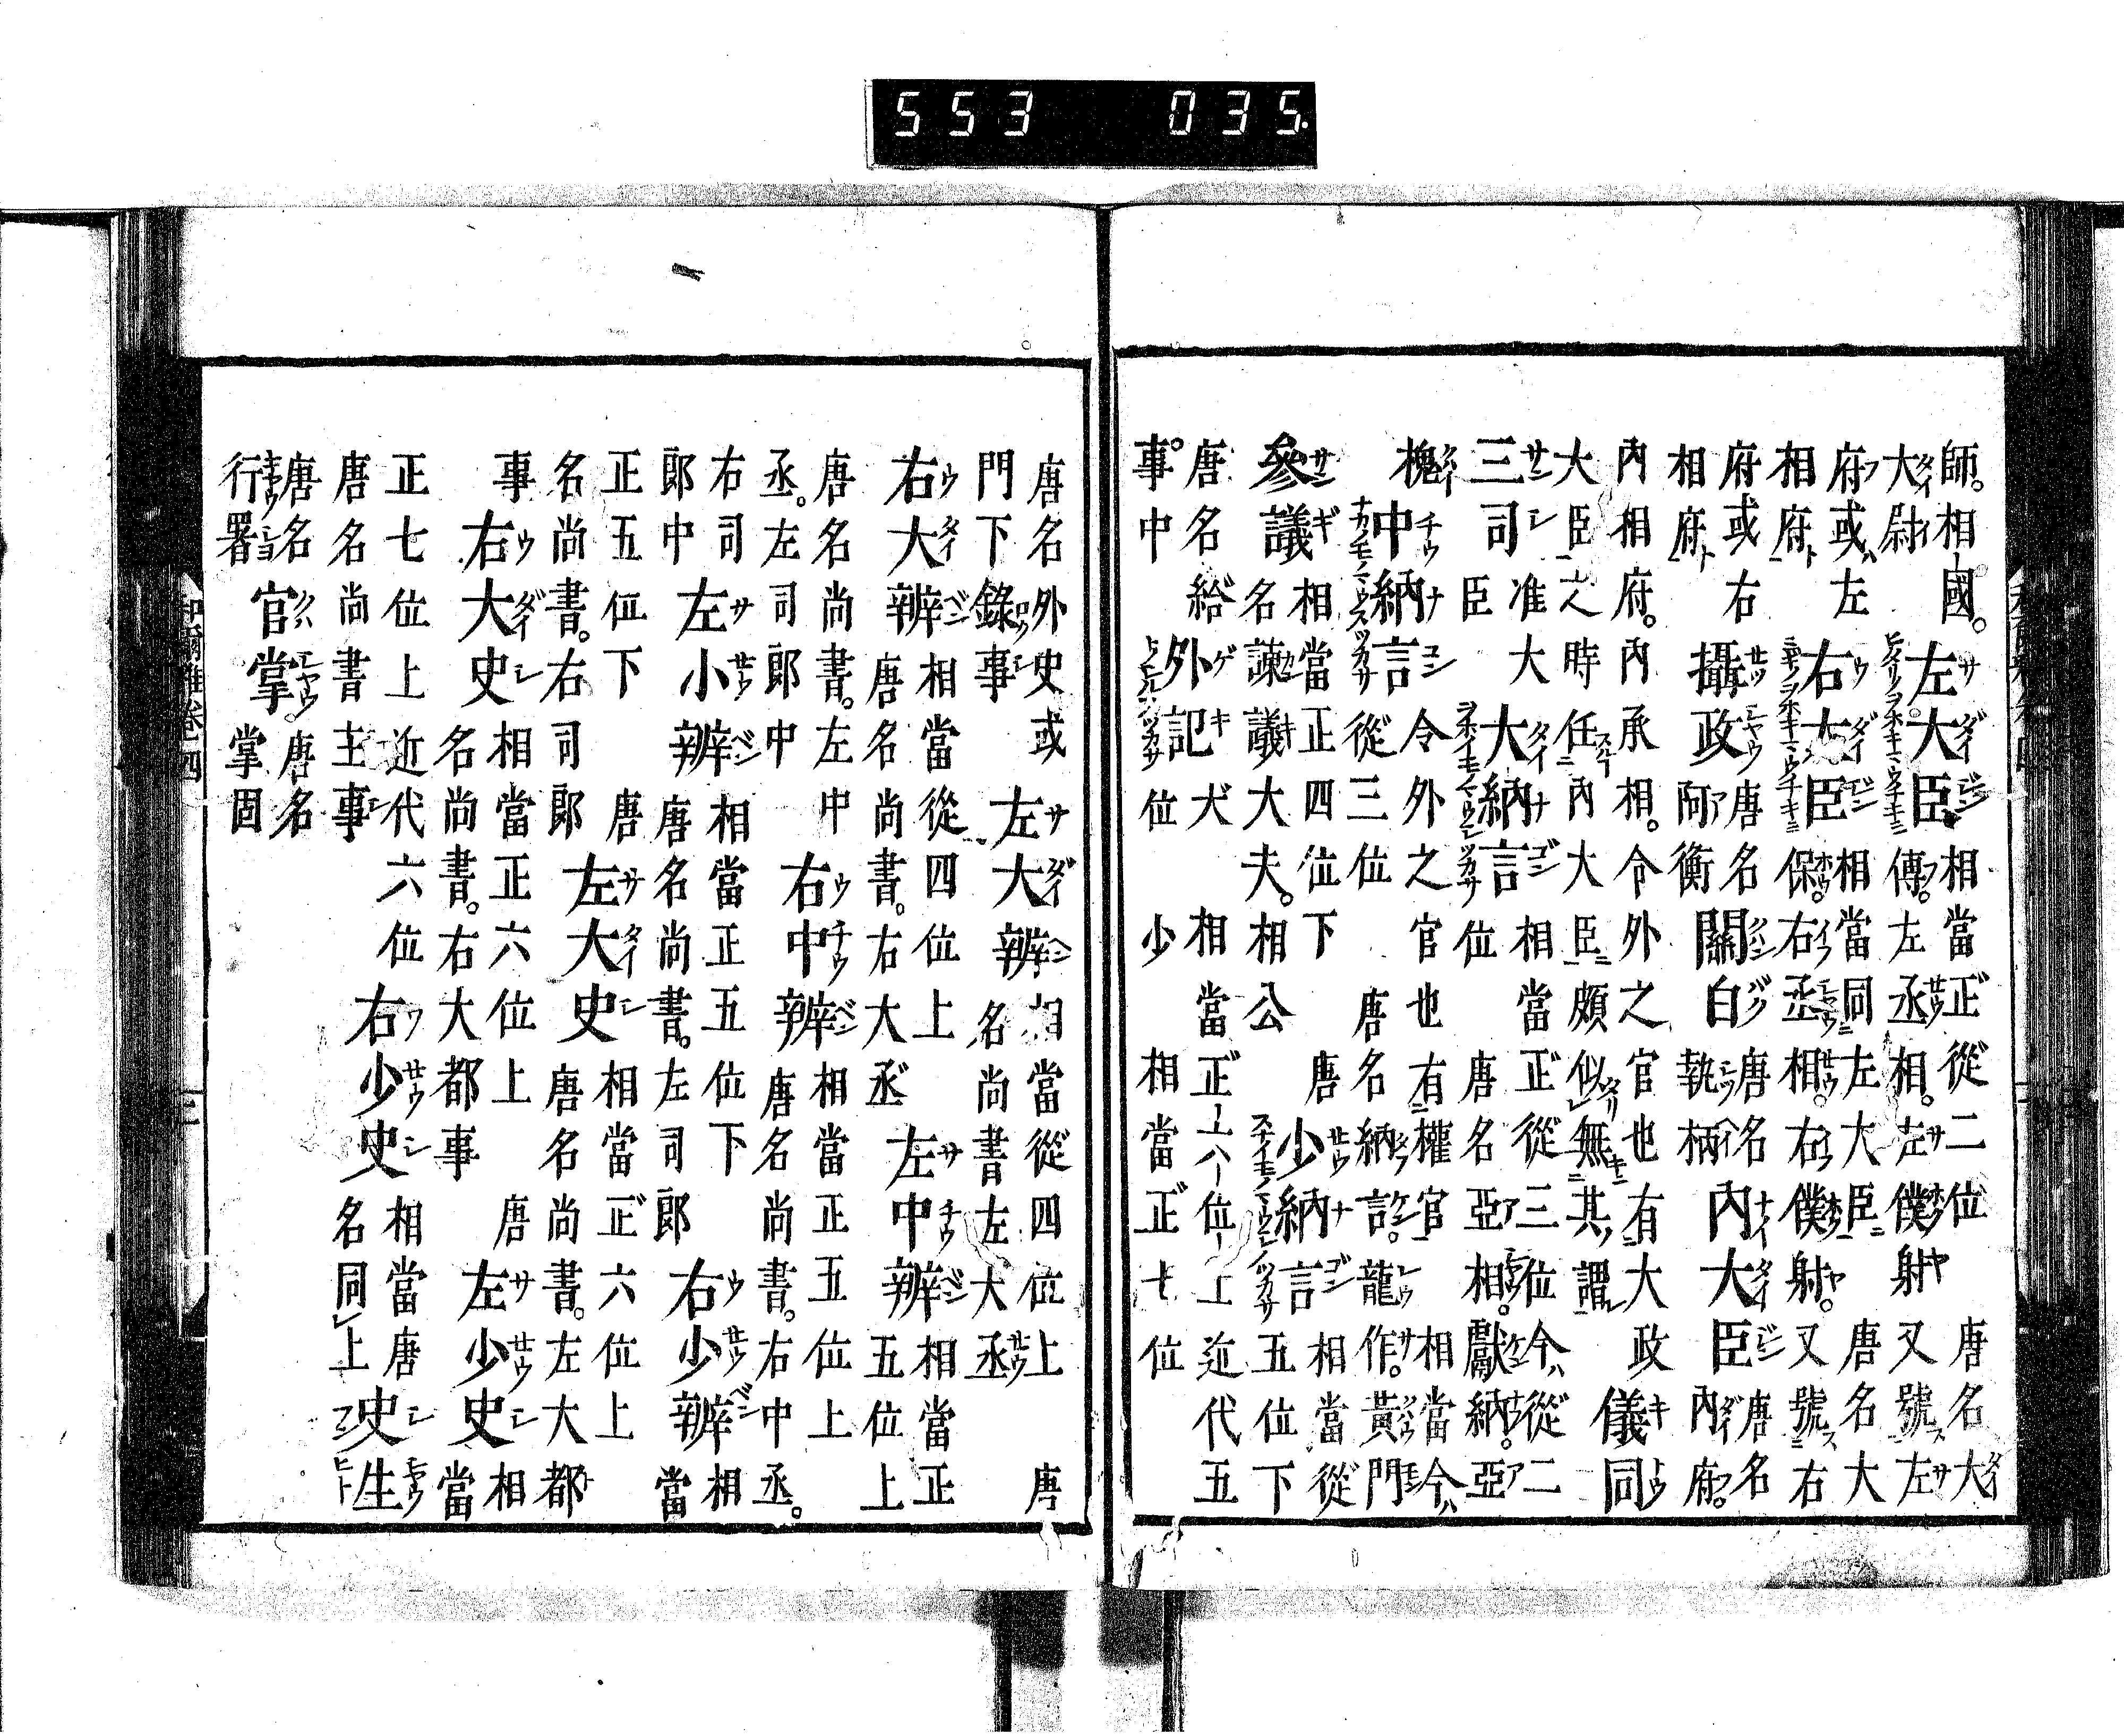 師。相國。大尉 左大臣 相當正從二位 唐名大傅。左丞相。左僕射 又號左
府或左相府 右大臣 相當同左大臣 唐名大保。右丞相。右僕射。又號右
府或右相府 攝政 唐名阿衡 關白 唐名執柄 內大臣 唐名內府。
內相府。內承相。令外之官也有大政大臣之人時任內大臣頗似無其謂 儀同
三司 准大臣 大納言 相當正從三位今從二位 唐名亞相。獻納。亞
槐 中納言 令外之官也有權官相當今從三位 唐名納言。龍作。黃門
參議 相當正四位下 唐名諫議大夫。相公 少納言 相當從五位下
唐名給事中 外記 大 相當正六位上近代五位 少 相當正七位
唐名外史或門下錄事 左大辨 相當從四位上 唐名尚書左大丞
右大辨 相當從四位上 唐名尚書。右大丞 左中辨 相當正五位上
唐名尚書。左中丞。左司郎中 右中辨 相當正五位上唐名尚書。右中丞。
右司郎中 左小辨 相當正五位下唐名尚書。左司郎 右少辨 相當
正五位下 唐名尚書。右司郎 左大史 相當正六位上唐名尚書。左大都
事 右大史 相當正六位上 唐名尚書。右大都事 左少史 相當
正七位上近代六位唐名尚書主事 右少史 相當唐名同上 史生
唐名行署 官掌。唐名掌固
和爾雅卷四 三
553 035.